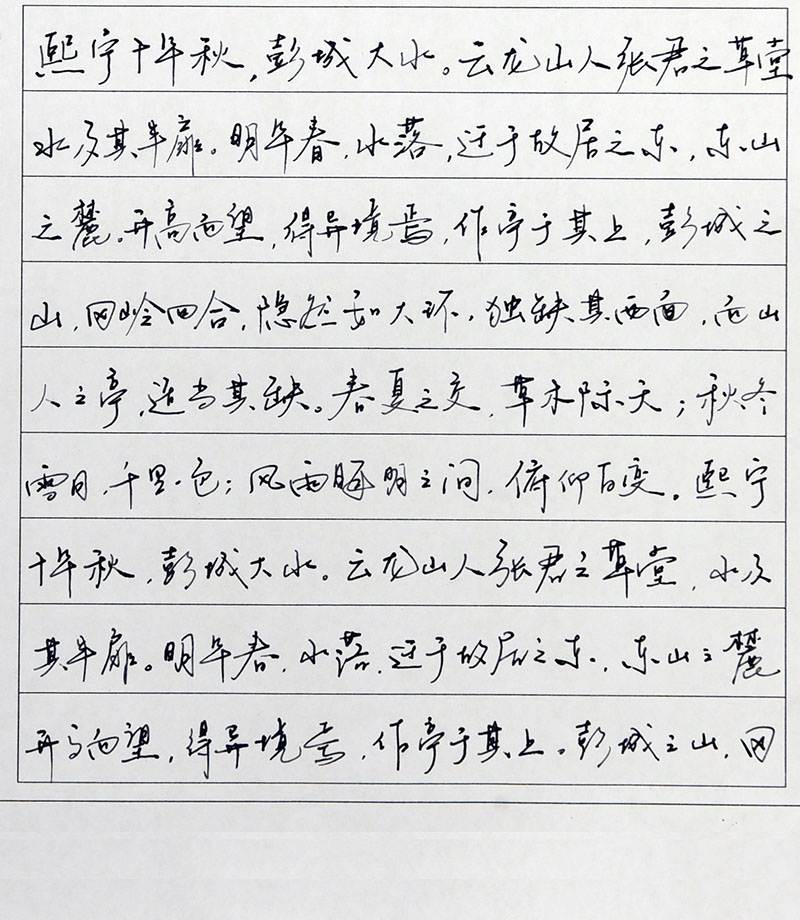 熙宁十年秋，彭城大水。云龙山人张君之草堂
水及其半扉。明年春，水落，迁于故居之东，东山
之麓。升高而望，得异境焉，作亭于其上，彭城之
山，冈岭四合，隐然如大环，独缺其西面，而山
人之亭，适当其缺。春夏之交，草木际天；秋冬
雪月，千里一色；风雨晦明之间，俯仰百变。熙宁
十年秋，彭城大水。云龙山人张君之草堂，水及
其半扉。明年春，水落，迁于故居之东，东山之麓
升高而望，得异境焉，作亭于其上。彭城之山，冈